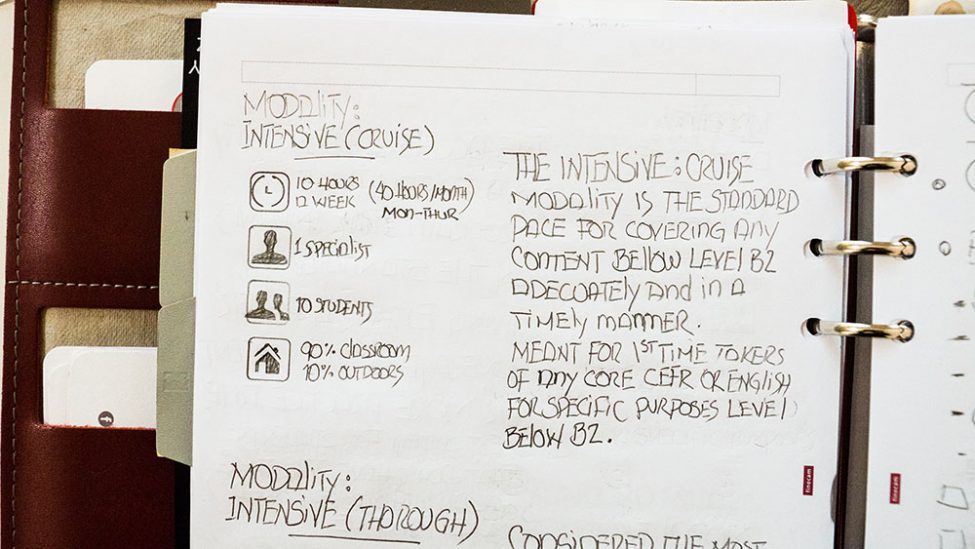 MODALITY:
INTENSIVE (CRUISE)
10 HOURS
A WEEK
(40 HOURS/MONTH)
MON-THUR
1 SPECIALIST
10 STUDENTS
90% CLASSROOM
10% OUTDOORS
THE INTENSIVE: CRUISE
MODALITY IS THE STANDARD
PACE FOR COVERING ANY
CONTENT BELLOW LEVEL B2
ADECUATELY AND IN A
TIMELY MANNER.
MEANT FOR 1ST TIME TAKERS
OF ANY CORE CEFR OR ENGLISH
FOR SPECIFIC PURPOSES LEVEL
BELOW B2.
MODALITY:
INTENSIVE (THOROUGH)
CONSIDERED THE MOST
finocam
finocam